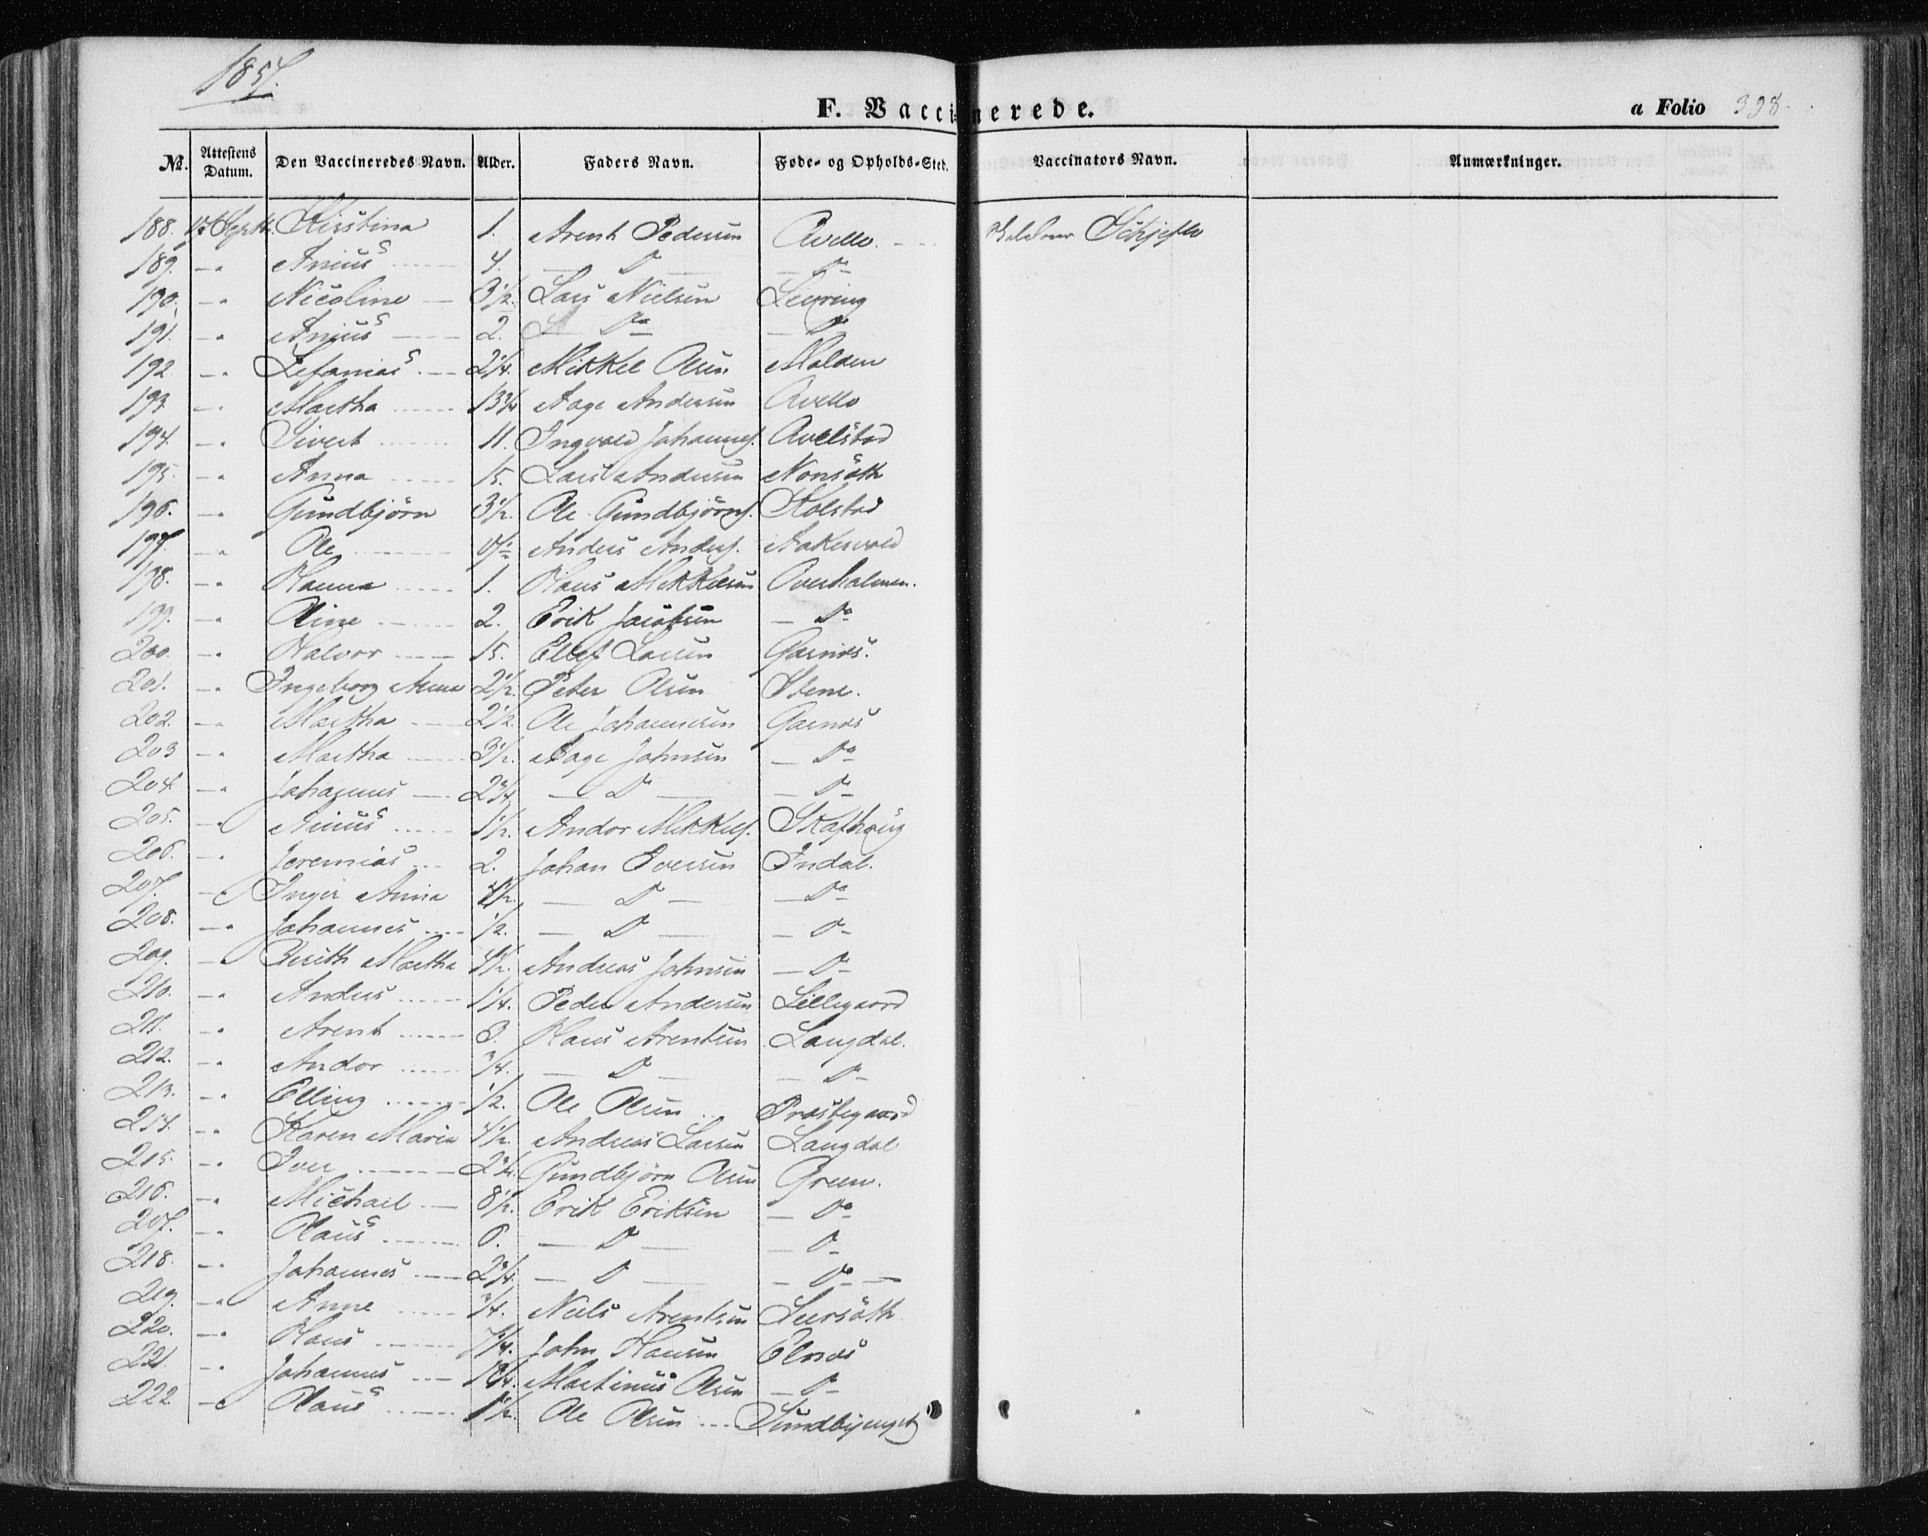 1857.
F. Vaccinerede. a Folio 398.
No. Attestens Datum. Den Vaccineredes Navn. Alder. Faders Navn. Føde- og Opholds-Sted. Vaccinators Navn. Anmærkninger.
188. Septbr. Kirstina 1. Arent Pedersen Avello. Schjefte
189. -"- Anius 4. D D
190. -"- Nicoline 3 1/2. Lars Nielsen Levring
191. -"- Anius 2. Do Do
192 -"- Zefanias 2 1/4. Mikkel Olsen Molden
193. -"- Martha 13 3/4 Aage Andersen Avello
194. -"- Sivert 11. Ingvald Johannes. Avelstad
195. -"- Anna 15. Lars Andersen Nonsöth
196. -"- Gundbjörn 3 1/2. Ole Gundbjörns. Holstad
197. -"- Ole Anders Anders. Aakervold
198. -"- Hanna 1. Hans Mikkelsen Overholmen.
199. -"- Oline 2. Erik Jacobsen Do
200. -"- Halvor 15. Ellef Larsen Garnæs.
201. -"- Ingeborg Anna 2 1/2. Peter Olsen Stene.
202. -"- Martha 2 1/2. Ole Johannesen Garnæs
203 -"- Martha 3 1/2. Aage Johnsen Do
204. -"- Johannes 2 3/4. D D
205. -"- Anius 1 1/2. Andor Mikkels. Skafhaug
206. -"- Jeremias 2. Johan Iversen Indal.
207. -"- Inger Anna 4 1/2. D Do
208. -"- Johannes 1/2. D D
209. -"- Berith Martha 4 1/2. Andreas Johnsen D
210. -"- Anders 1 1/4. Peder Andersen Lillegaard
211. -"- Arent 3. Hans Arentsen Langdal.
212. -"- Andor 3/4. D D
213. -"- Elling 1/2. Ole Olsen Præstegaard
214. -"- Karen Maria 4 1/2. Andreas Larsen Langdal
215. -"- Iver 2 3/4. Gundbjörn Olsen Green.
216. -"- Michael 8 1/2. Erik Eriksen Do
217. -"- Olaus 6. D D
218. -"- Johannes 2 3/4. D Do
219. -"- Anne 3/4. Niels Arentsen Leersöth
220. -"- Hans John Hansen Elnæs
221. -"- Johannes Martinus Olsen D
222 -"- Olaus 1 1/2. Ole Olsen Sundbyenget